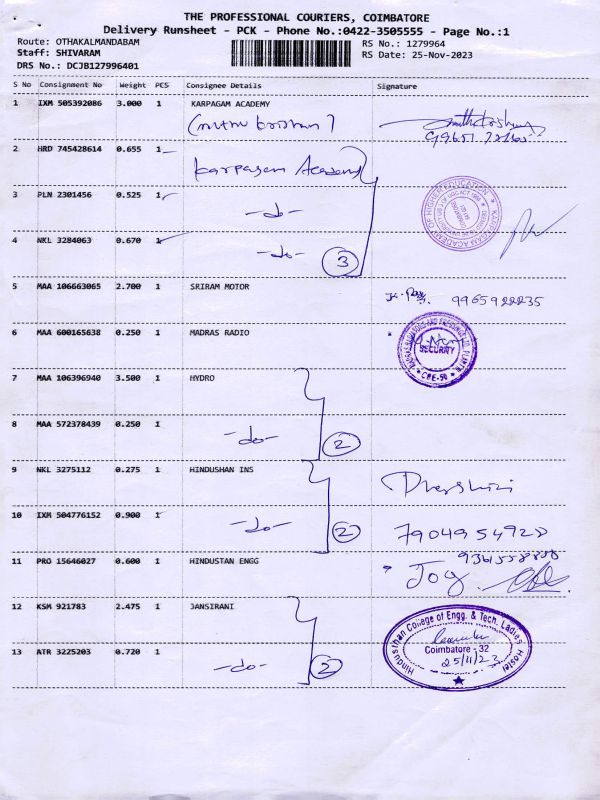 THE PROFESSIONAL COURIERS, COIMBATORE
Delivery Runsheet - PCK - Phone No.:0422-3505555 - Page No.:1
Route: OTHAKALMANDABAM
RS No.: 1279964
Staff: SHIVARAM
RS Date: 25-Nov-2023
DRS No.: DCJB127996401
S No Consignment No Weight PCS Consignee Details Signature
1 IXM 505392086 3.000 1 KARPAGAM ACADEMY
2 HRD 745428614 0.655 1 karpagam Academy
3 PLN 2301456 0.525 1 -do-
4 NKL 3284063 0.670 1 -do- 3
5 MAA 106663065 2.700 1 SRIRAM MOTOR 9965922235
6 MAA 600165638 0.250 1 MADRAS RADIO
SECURITY
CPE-50
7 MAA 106396940 3.500 1 HYDRO
8 MAA 572378439 0.250 1 -do- 2
9 NKL 3275112 0.275 1 HINDUSHAN INS
10 IXM 504776152 0.900 1 -do- 2 7904954928
11 PRO 15646027 0.600 1 HINDUSTAN ENGG
12 KSM 921783 2.475 1 JANSIRANI
Hindusthan College of Engg. & Tech. Ladies Hostel
Coimbatore - 32
25/11/23
13 ATR 3225203 0.720 1 -do- 2